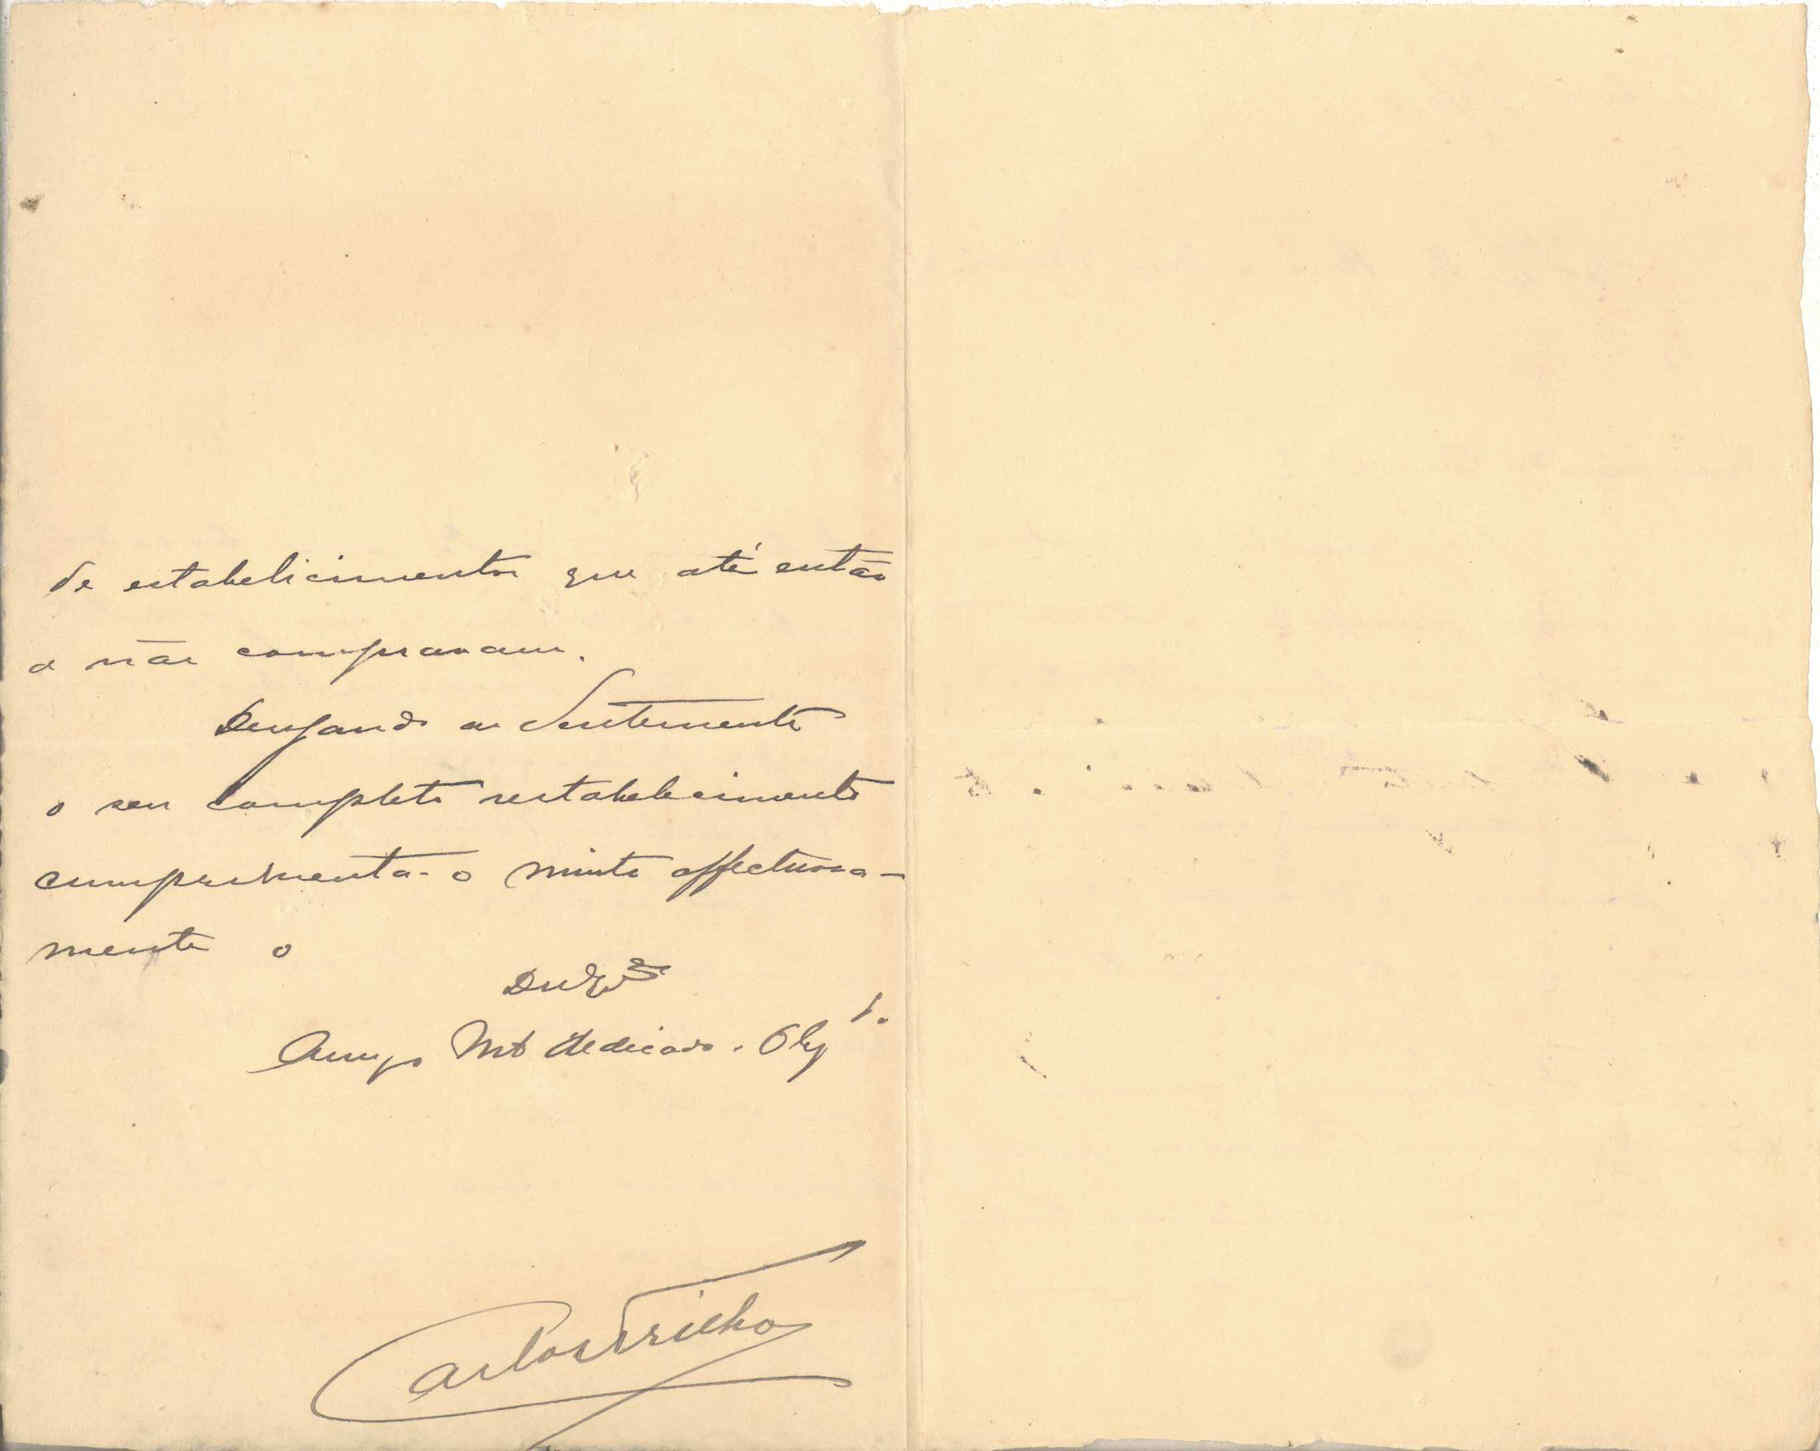 de estabelicimentos que até então
a não compravam.
Dezejando ardentemente
o seu completo restabelecimento
cumprimenta-o muito affectuosa-
mente o
Amigo Mto dedicado. Obg
Carlos Trilho